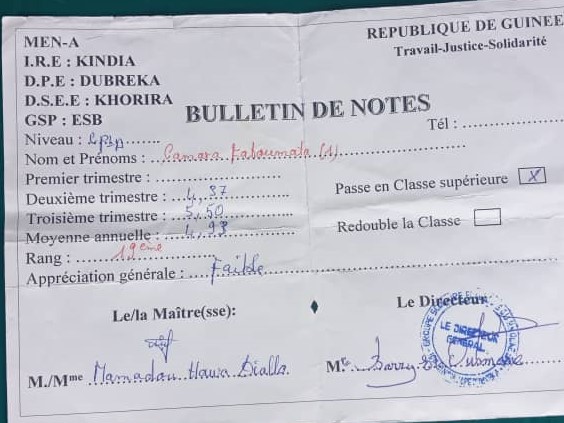 MEN-A
REPUBLIQUE DE GUINEE
I.R.E : KINDIA
Travail-Justice-Solidarité
D.P.E : DUBREKA
D.S.E.E : KHORIRA
GSP : ESB
BULLETIN DE NOTES
Niveau :
Tél :
Nom et Prénoms : Camara Fatoumata (1)
Premier trimestre :
Deuxième trimestre : 4,37
Passe en Classe supérieure X
Troisième trimestre : 5,50
Moyenne annuelle : 4,93
Redouble la Classe
Rang : 19ème
Appréciation générale : Faible
Le/la Maître(sse):
Le Directeur
LE DIRECTEUR
GENERAL
M./Mme Mamadou Hawa Diallo
Mr Barry Ousmane